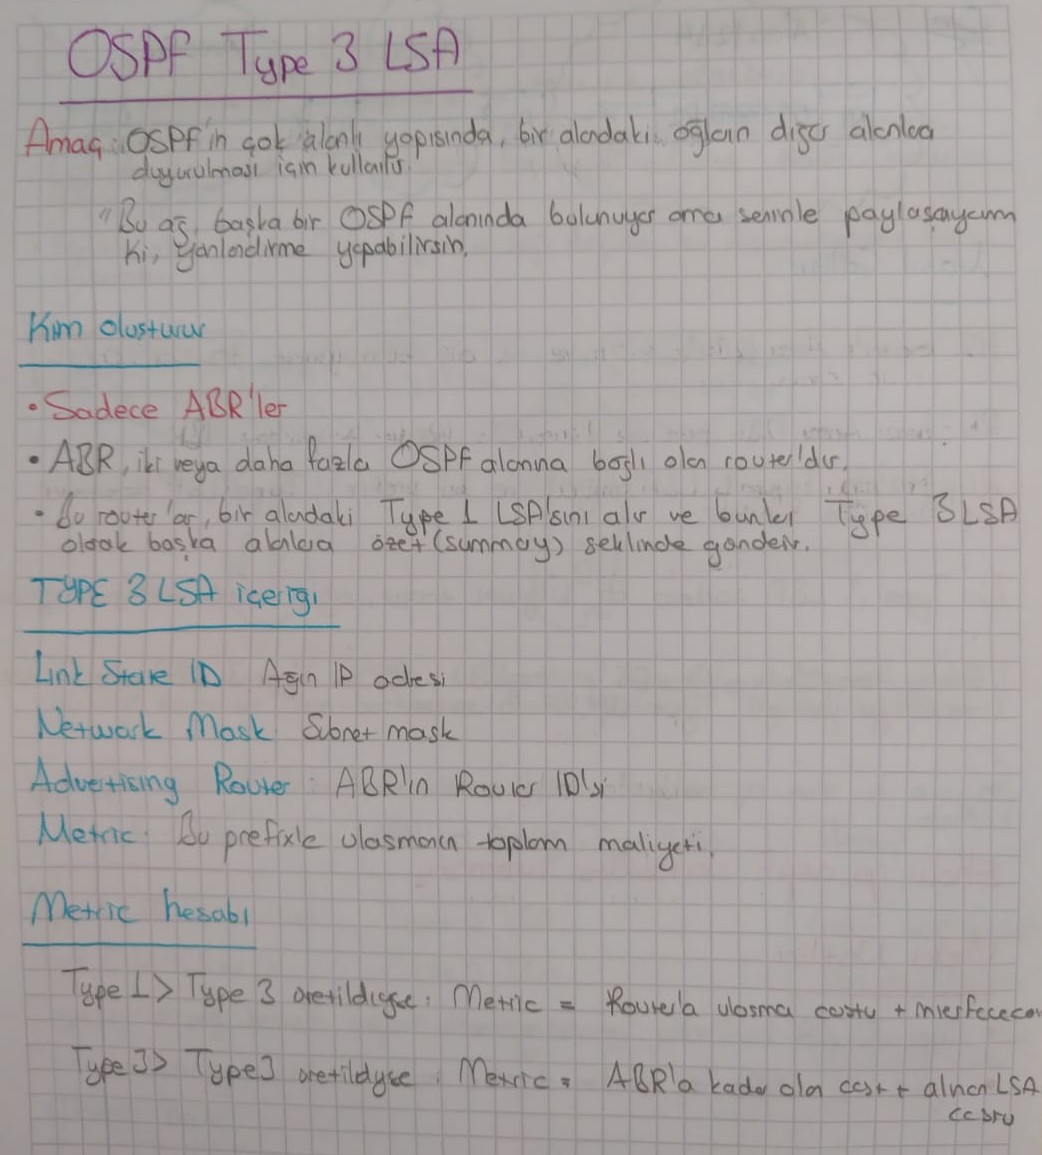 OSPF Type 3 LSA
Amaç: OSPF'in çok alanlı yapısında, bir alandaki ağların diğer alanlara
duyurulması için kullanılır.
"Bu ağ, başka bir OSPF alanında bulunuyor ama seninle paylaşayım
ki, yönlendirme yapabilirsin.
Kim oluşturur
• Sadece ABR'ler
• ABR, iki veya daha fazla OSPF alanına bağlı olan router'dır.
• Bu router'lar, bir alandaki Type 1 LSA'sını alır ve bunları Type 3 LSA
olarak başka alanlara özet (summary) şeklinde gönderir.
TYPE 3 LSA içeriği
Link State ID Ağın IP adresi
Network Mask Subnet mask
Advertising Router: ABR'ın Router ID'si
Metric: Bu prefixle ulaşmanın toplam maliyeti.
Metric hesabı
Type 1> Type 3 üretildiyse: Metric = Router'a ulaşma costu +
Type 3> Type 3 üretildiyse: Metric = ABR'a kadar olan cost + alınan LSA
costu